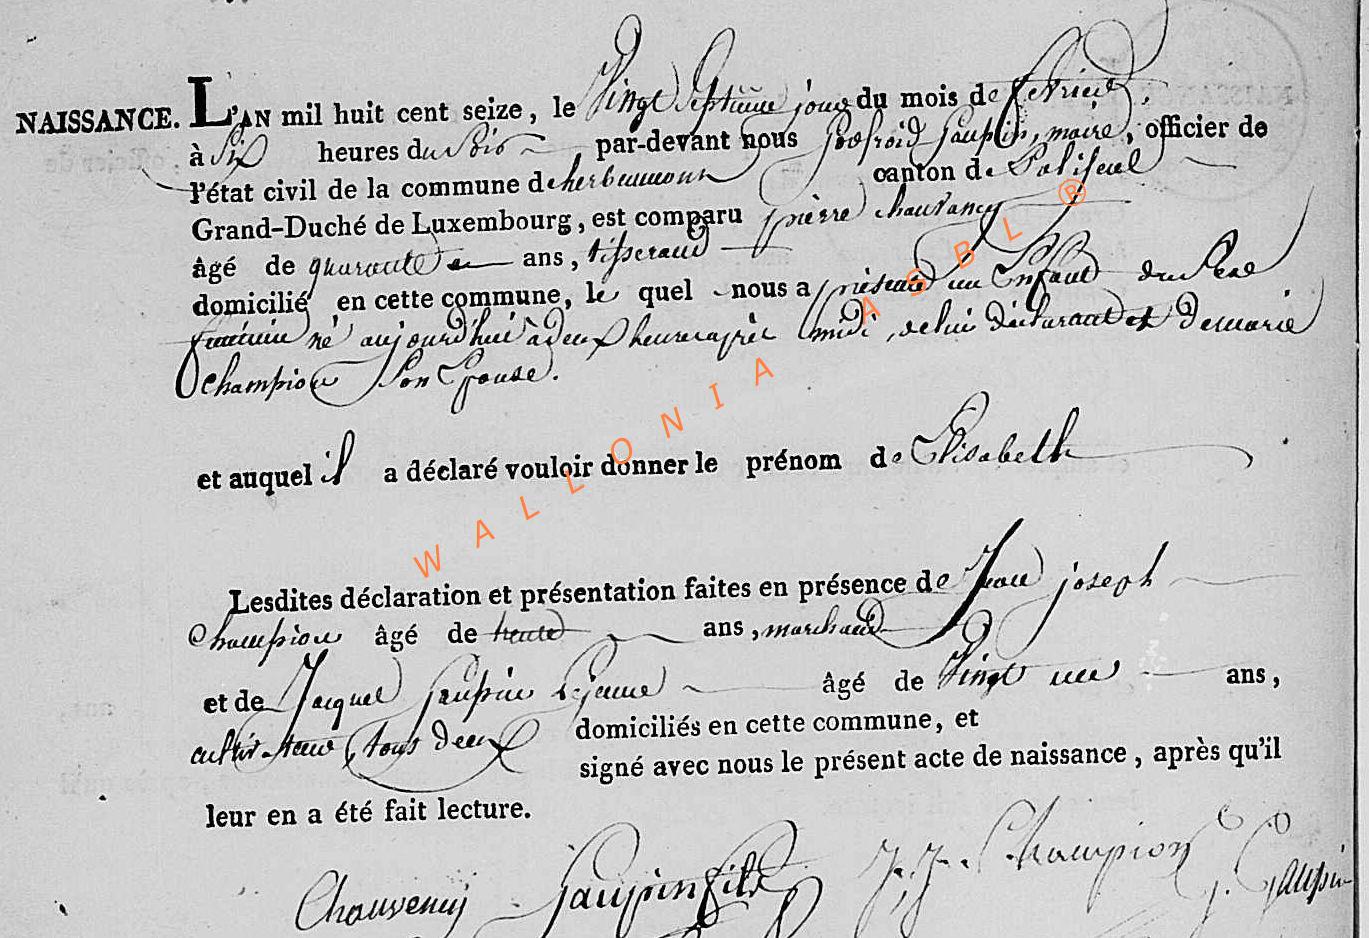 NAISSANCE. L'AN mil huit cent seize, le Vingt Septieme jour du mois de fevrier,
à Six heures du Soir par-devant nous Godfroid Gaupin, maire, officier de
l'état civil de la commune de herbeumont canton de Paliseul
Grand-Duché de Luxembourg, est comparu pierre chauvancy
âgé de quarante un ans, tisserand
domicilié en cette commune, le quel nous a présenté un Enfant du Sexe
féminin né aujourd'hui à deux heures après midi, de lui déclarant et De marie
champion Son Epouse.
et auquel il a déclaré vouloir donner le prénom de Elisabeth
Lesdites déclaration et présentation faites en présence de Jean joseph
Champion âgé de trente ans, marchand
et de Jacque Gaupin le jeune âgé de Vingt un ans,
cultivateur, tous deux domiciliés en cette commune, et
signé avec nous le présent acte de naissance, après qu'il
leur en a été fait lecture.
Chauvency Gaupin fils J. J. Champion J. Gaupin
WALLONIA ASBL ®